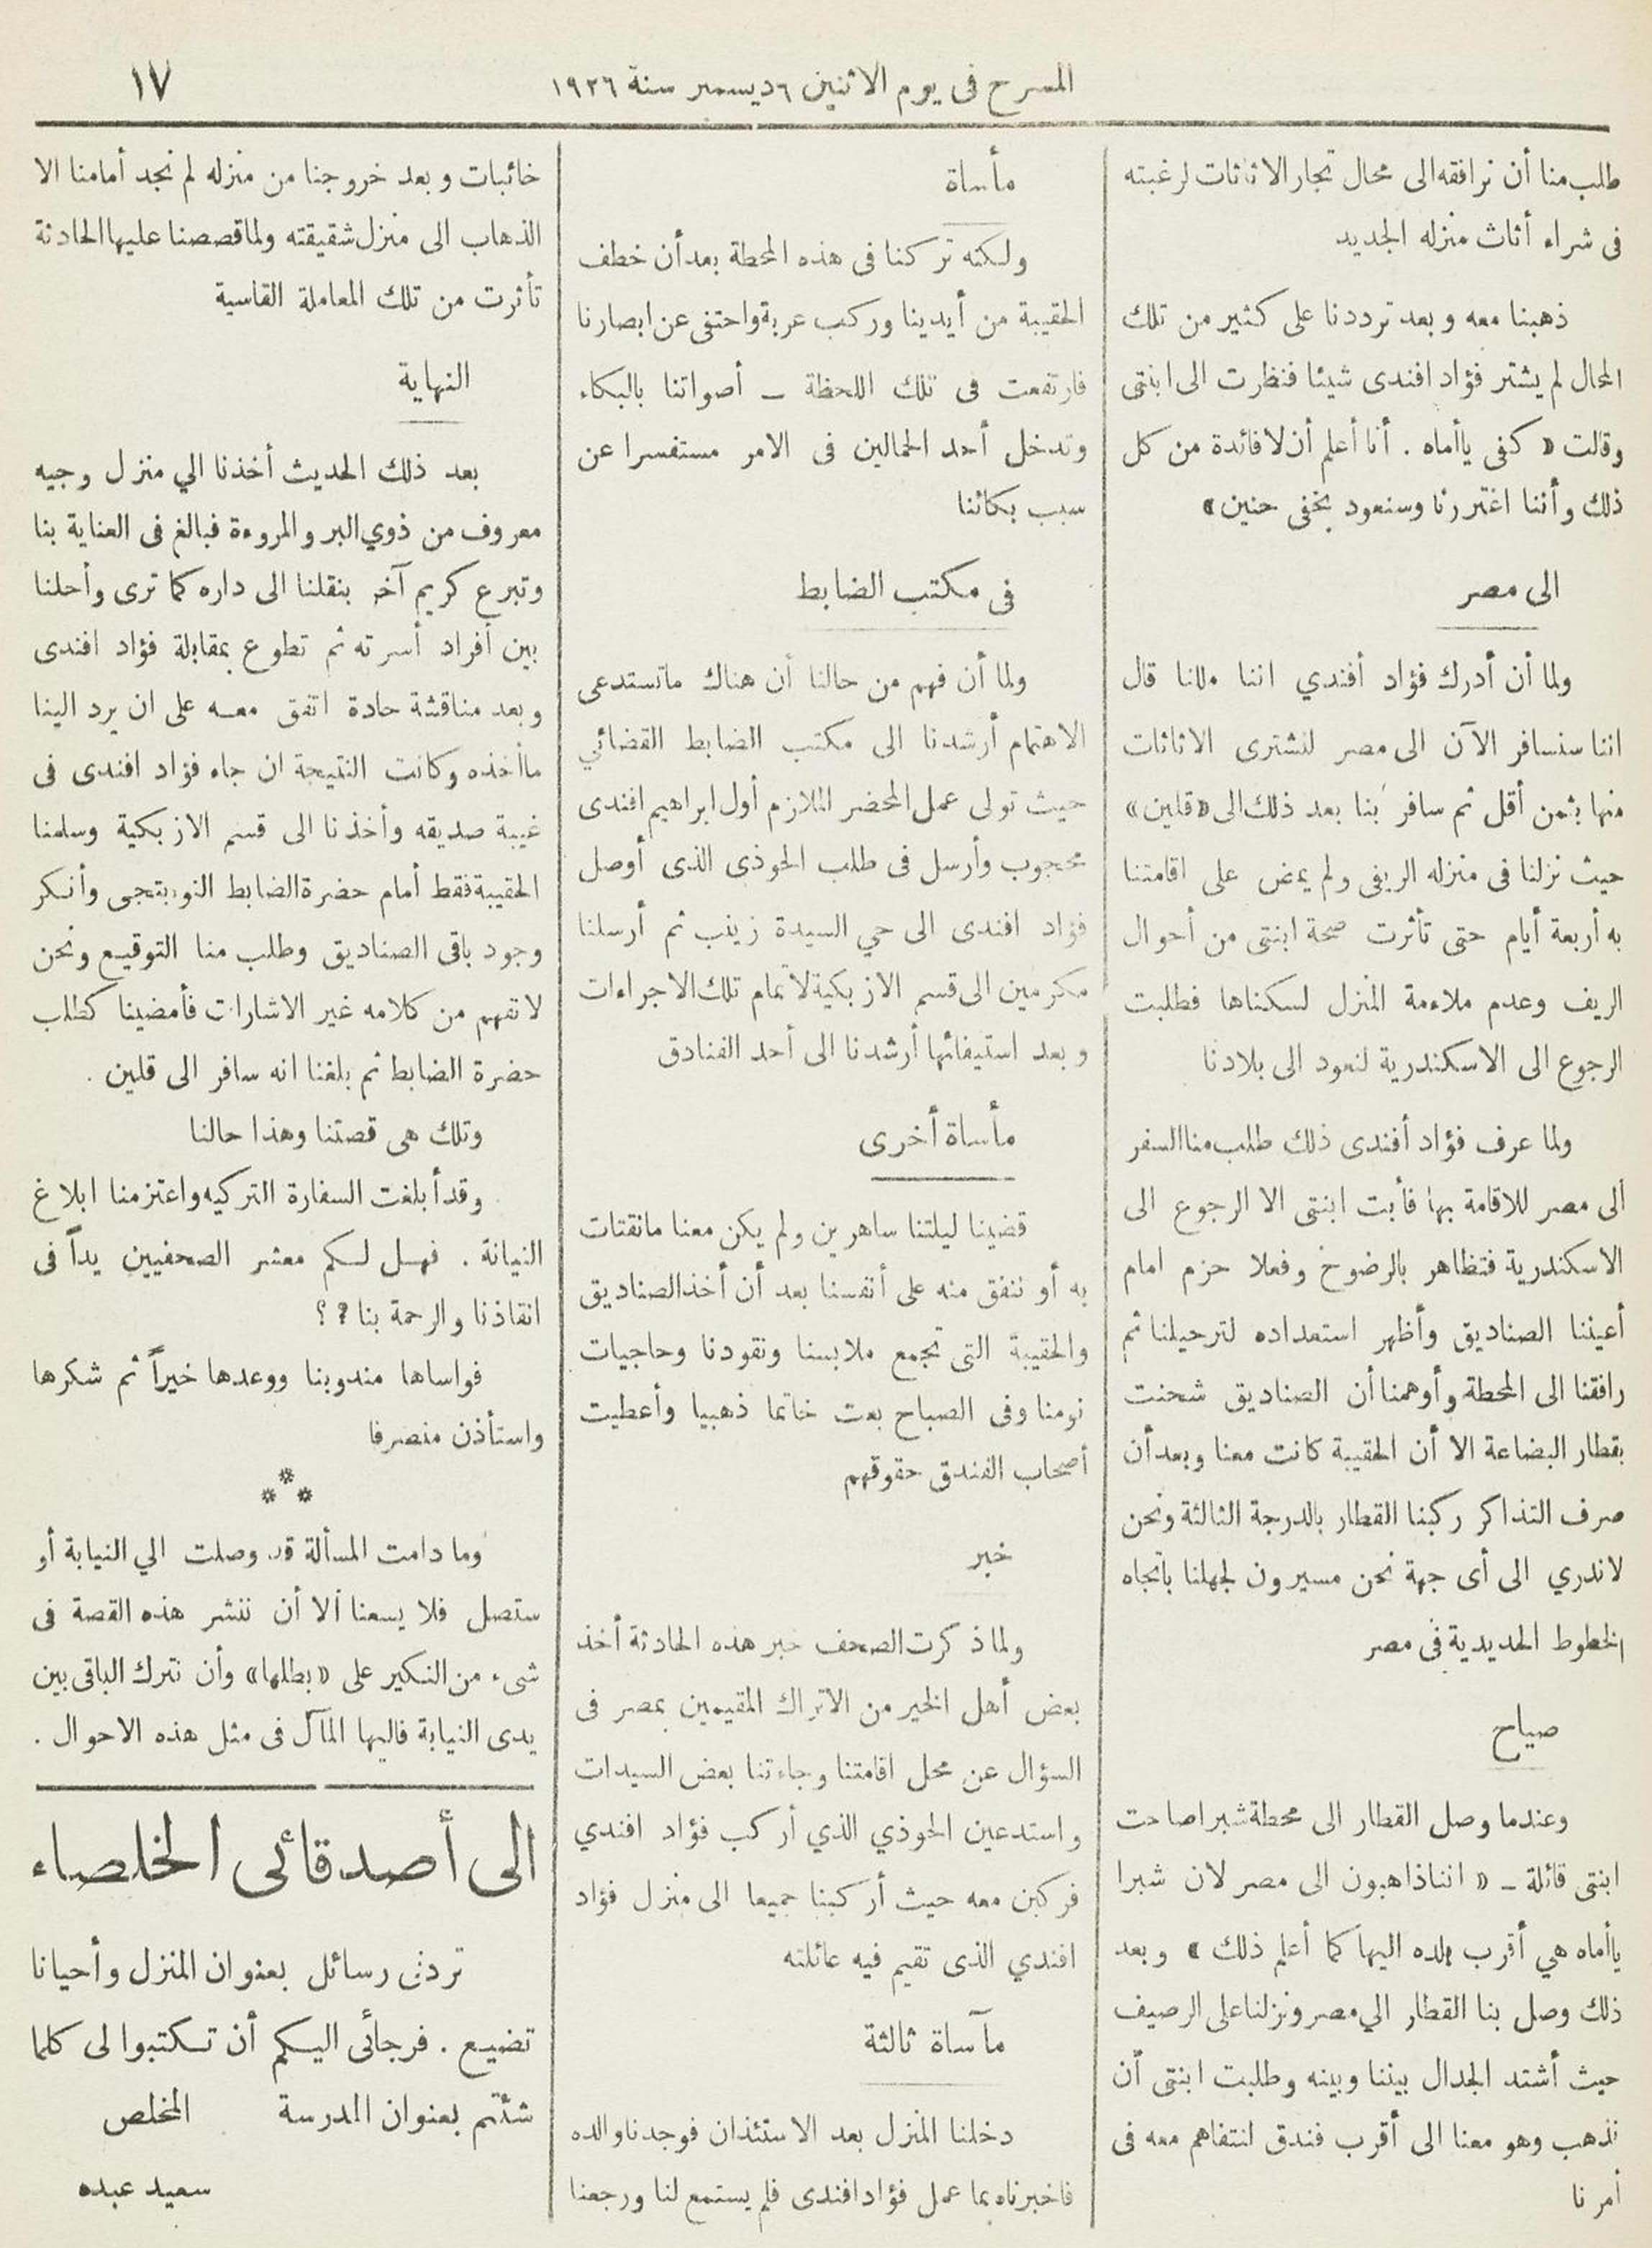 المسرح فى يوم الاثنين ٦ ديسمبر سنة ١٩٢٦
١٧
طلب منا أن نرافقه الى محال تجار الاثاثات لرغبته
فى شراء أثاث منزله الجديد
ذهبنا معه وبعد ترددنا على كثير من تلك
المحال لم يشتر فؤاد افندى شيئا فنظرت الى ابنتى
وقالت « كفى ياأماه . أنا أعلم أن لا فائدة من كل
ذلك وأننا اغتررنا وسنعود بخفى حنين »
الى مصر
ولما أن أدرك فؤاد أفندي اننا مللنا قال
اننا سنسافر الآن الى مصر لنشترى الاثاثات
منها بثمن أقل ثم سافر بنا بعد ذلك الى «قلين»
حيث نزلنا فى منزله الريفى ولم يمض على اقامتنا
به أربعة أيام حتى تأثرت صحة ابنتى من أحوال
الريف وعدم ملاءمة المنزل لسكناها فطلبت
الرجوع الى الاسكندرية لنعود الى بلادنا
ولما عرف فؤاد أفندى ذلك طلب منا السفر
الى مصر للاقامة بها فأبت ابنتى الا الرجوع الى
الاسكندرية فتظاهر بالرضوخ وفعلا حزم امام
أعيننا الصناديق وأظهر استعداده لترحيلنا ثم
رافقنا الى المحطة وأوهمنا أن الصناديق شحنت
بقطار البضاعة الا أن الحقيبة كانت معنا وبعد أن
صرف التذاكر ركبنا القطار بالدرجة الثالثة ونحن
لاندري الى أى جهة نحن مسيرون لجهلنا باتجاه
الخطوط الحديدية فى مصر
صياح
وعندما وصل القطار الى محطة شبرا صاحت
ابنتى قائلة ـ « اننا ذاهبون الى مصر لان شبرا
ياأماه هي أقرب بلده اليها كما أعلم ذلك » وبعد
ذلك وصل بنا القطار الي مصر ونزلنا على الرصيف
حيث أشتد الجدال بيننا وبينه وطلبت ابنتى أن
نذهب وهو معنا الى أقرب فندق لنتفاهم معه فى
أمرنا
مأساة
ولكنه تركنا فى هذه المحطة بعد أن خطف
الحقيبة من أيدينا وركب عربة واختفى عن ابصارنا
فارتفعت فى تلك اللحظة ـ أصواتنا بالبكاء
وتدخل أحد الحمالين فى الامر مستفسرا عن
سبب بكائنا
فى مكتب الضابط
ولما أن فهم من حالنا أن هناك ماتستدعى
الاهتمام أرشدنا الى مكتب الضابط القضائي
حيث تولى عمل المحضر الملازم أول ابراهيم افندى
محجوب وأرسل فى طلب الحوذى الذى أوصل
فؤاد افندى الى حي السيدة زينب ثم أرسلنا
مكرمين الى قسم الازبكية لاتمام تلك الاجراءات
وبعد استيفائها أرشدنا الى أحد الفنادق
مأساة أخرى
قضينا ليلتنا ساهرين ولم يكن معنا مانقتات
به أو ننفق منه على أنفسنا بعد أن أخذ الصناديق
والحقيبة التى تجمع ملابسنا ونقودنا وحاجيات
نومنا وفى الصباح بعت خاتما ذهبيا وأعطيت
أصحاب الفندق حقوقهم
خبر
ولما ذكرت الصحف خبر هذه الحادثة أخذ
بعض أهل الخير من الاتراك المقيمين بمصر فى
السؤال عن محل اقامتنا وجاءتنا بعض السيدات
واستدعين الحوذي الذي أركب فؤاد افندي
فركبن معه حيث أركبنا جميعا الى منزل فؤاد
افندي الذى تقيم فيه عائلته
مآساة ثالثة
دخلنا المنزل بعد الاستئذان فوجدنا والده
فاخبرناه بما عمل فؤاد افندى فلم يستمع لنا ورجعنا
خائبات وبعد خروجنا من منزله لم نجد أمامنا الا
الذهاب الى منزل شقيقته ولما قصصنا عليها الحادثة
تأثرت من تلك المعاملة القاسية
النهاية
بعد ذلك الحديث أخذنا الي منزل وجيه
معروف من ذوي البر والمروءة فبالغ فى العناية بنا
وتبرع كريم آخر بنقلنا الى داره كما ترى وأحلنا
بين أفراد أسرته ثم تطوع بمقابلة فؤاد افندى
وبعد مناقشة حادة اتفق معه على ان يرد الينا
ماأخذه وكانت النتيجة ان جاء فؤاد افندى فى
غيبة صديقه وأخذنا الى قسم الازبكية وسلمنا
الحقيبة فقط أمام حضرة الضابط النوبتجى وأنكر
وجود باقى الصناديق وطلب منا التوقيع ونحن
لانفهم من كلامه غير الاشارات فأمضينا كطلب
حضرة الضابط ثم بلغنا انه سافر الى قلين .
وتلك هى قصتنا وهذا حالنا
وقد أبلغت السفارة التركيه واعتزمنا ابلاغ
النيانة . فهل لكم معشر الصحفيين يداً فى
انقاذنا والرحمة بنا ? ؟
فواساها مندوبنا ووعدها خيراً ثم شكرها
واستأذن منصرفا
***
وما دامت المسألة قد وصلت الي النيابة أو
ستصل فلا يسعنا ألا أن ننشر هذه القصة فى
شىء من النكير على «بطلها» وأن نترك الباقى بين
يدى النيابة فاليها المآل فى مثل هذه الاحوال .
الى أصدقائى الخلصاء
تردنى رسائل بعنوان المنزل وأحيانا
تضيع . فرجائى اليكم أن تكتبوا لى كلما
شئتم بعنوان المدرسة المخلص
سعيد عبده